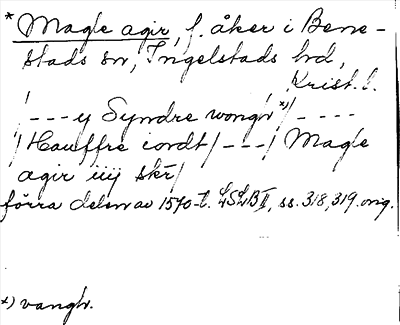 * Magle agir, f. åker i Bene-
stads sn, Ingelstads hd,
Krist. l.
/---y Syndre wongh *)/----
/Hauffre iordt/---/ Magle
agir iiij skr/
förra delen av 1570-t. LSLB II, ss. 318, 319. orig.
*) vangh.